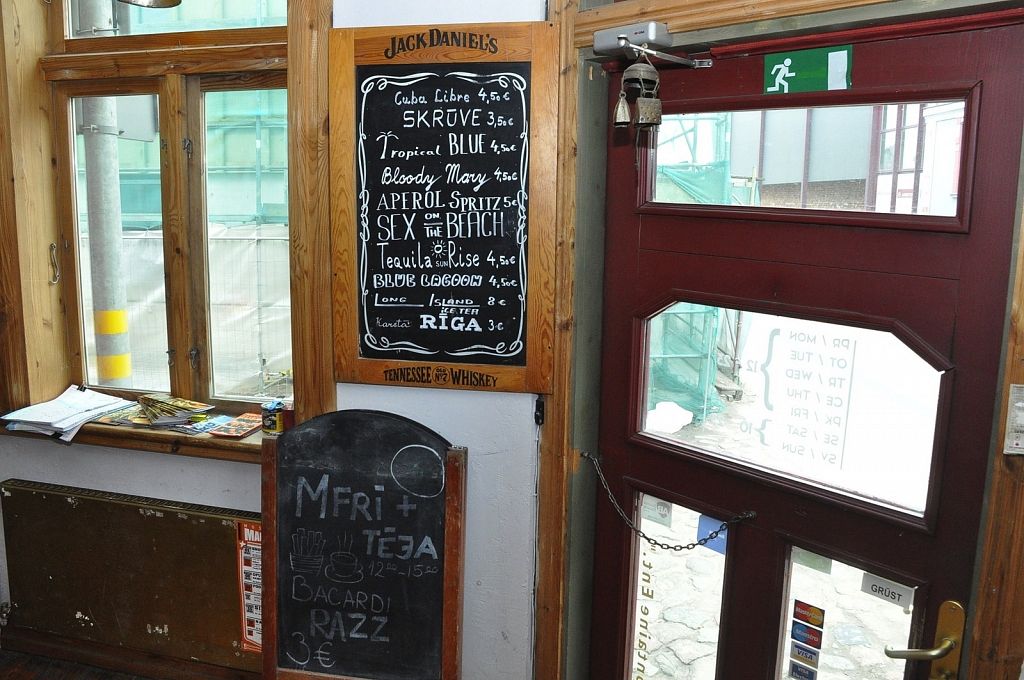 JACK DANIEL'S
Cuba Libre 4,50€
SKRŪVE 3,50€
Tropical BLUE 4,50€
Bloody Mary 4,50€
APEROL SPRITZ 5€
SEX ON THE BEACH
Tequila SUN Rise 4,50€
BLUE LAGOON 4,50€
LONG ISLAND ICE TEA 8€
Karstā RĪGA 3€
TENNESSEE OLD No 7 WHISKEY
MFRĪ +
TĒJA
1200-1500
BACARDI
RAZZ
3€
PR / MON
OT / TUE
TR / WED
CE / THU
PK / FRI
SE / SAT
SV / SUN
12
10
ontaine Ent.
GRŪST
MasterCard
Maestro
VISA
VISA